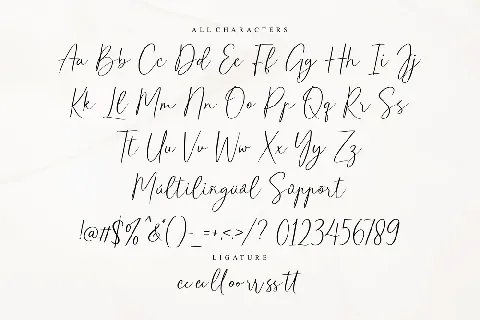 ALL CHARACTERS
Aa Bb Cc Dd Ee Ff Gg Hh Ii Jj
Kk Ll Mm Nn Oo Pp Qq Rr Ss
Tt Uu Vv Ww Xx Yy Zz
Multilingual Support
!@#$%^&*()-_=+,<.>/? 0123456789
LIGATURE
cc ee ll oo rr ss tt